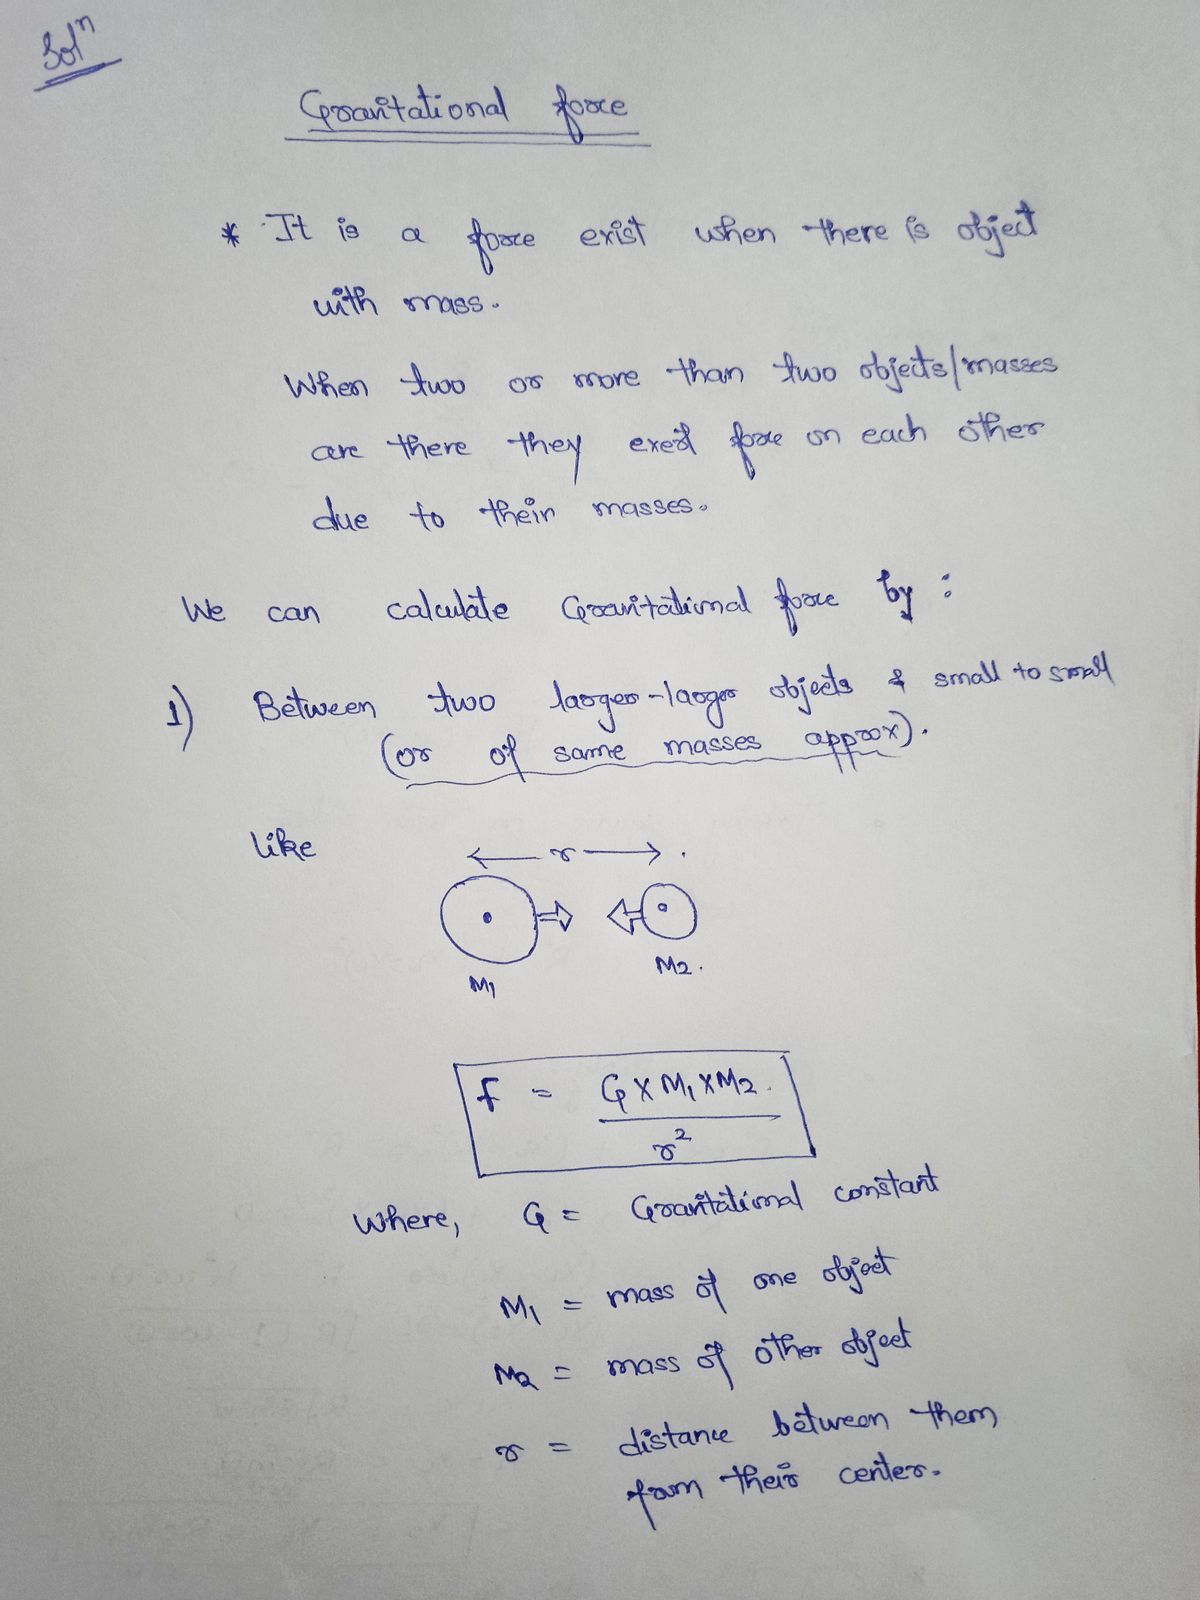 Solⁿ
Gravitational force
* It is a force exist when there is object
with mass.
When two or more than two objects/masses
are there they exert force on each other
due to their masses.
We can calculate Gravitational force by :
1) Between two larger-larger objects & small to small
(or of same masses approx).
like
r
M1
M2.
f = G x M1 x M2
r²
Where, G = Gravitational constant
M1 = mass of one object
M2 = mass of other object
r = distance between them
from their center.